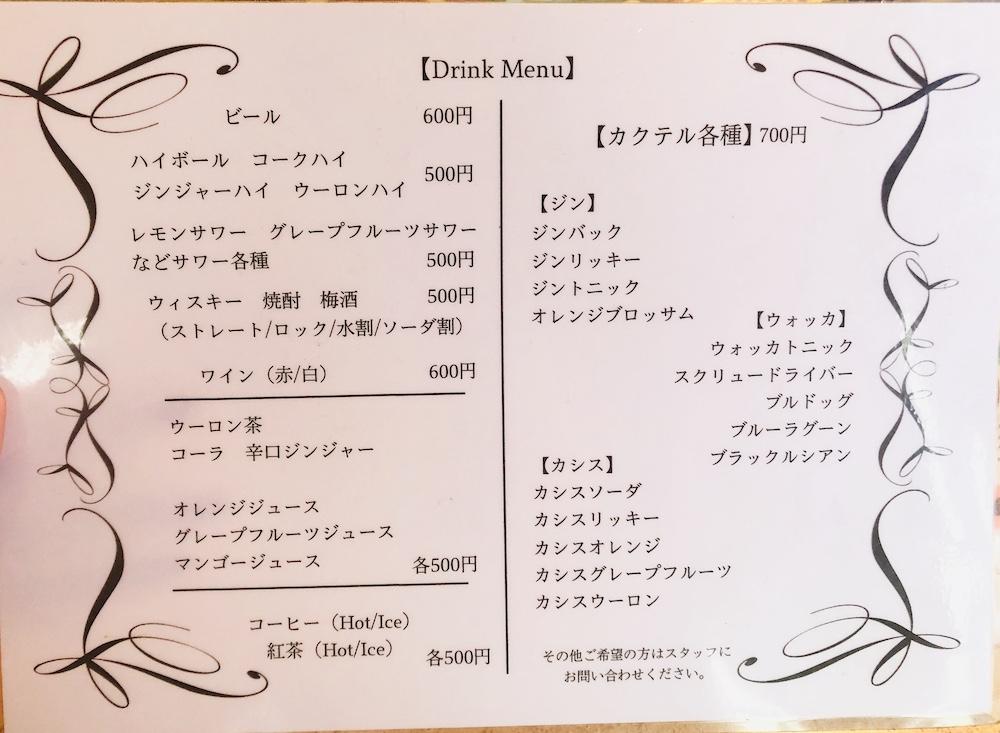 【Drink Menu】
ビール 600円
ハイボール コークハイ
ジンジャーハイ ウーロンハイ 500円
レモンサワー グレープフルーツサワー
などサワー各種 500円
ウィスキー 焼酎 梅酒 500円
（ストレート/ロック/水割/ソーダ割）
ワイン（赤/白） 600円
ウーロン茶
コーラ 辛口ジンジャー
オレンジジュース
グレープフルーツジュース
マンゴージュース 各500円
コーヒー（Hot/Ice）
紅茶（Hot/Ice） 各500円
【カクテル各種】700円
【ジン】
ジンバック
ジンリッキー
ジントニック
オレンジブロッサム
【ウォッカ】
ウォッカトニック
スクリュードライバー
ブルドッグ
ブルーラグーン
ブラックルシアン
【カシス】
カシスソーダ
カシスリッキー
カシスオレンジ
カシスグレープフルーツ
カシスウーロン
その他ご希望の方はスタッフに
お問い合わせください。